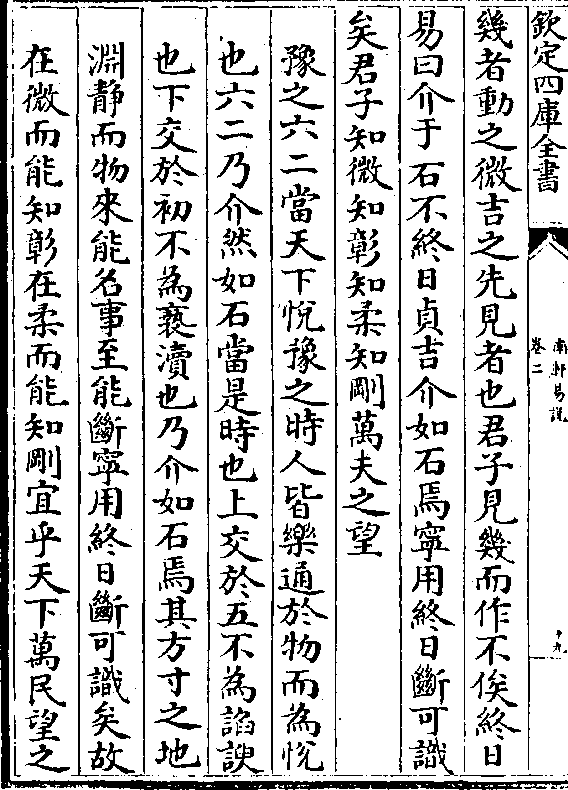 欽定四庫全書
南軒易說
卷二
十九
幾者動之微吉之先見者也君子見幾而作不俟終日
易曰介于石不終日貞吉介如石焉寧用終日斷可識
矣君子知微知彰知柔知剛萬夫之望
豫之六二當天下悅豫之時人皆樂通於物而為悅
也六二乃介然如石當是時也上交於五不為諂諛
也下交於初不為褻瀆也乃介如石焉其方寸之地
淵静而物來能名事至能斷寧用終日斷可識矣故
在微而能知彰在柔而能知剛宜乎天下萬民望之